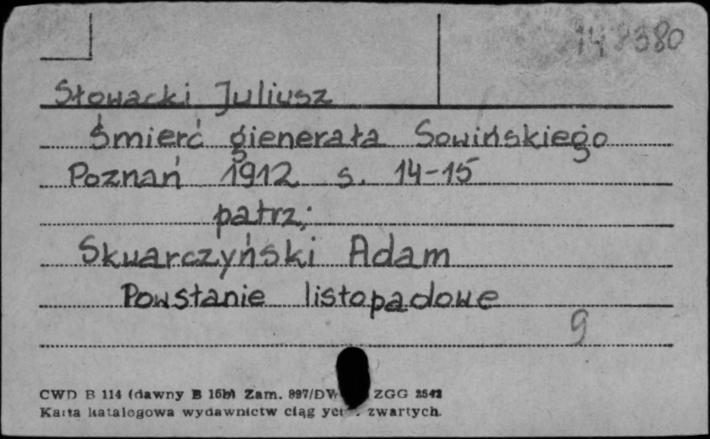 Słowacki Juliusz
Śmierć gienerała Sowińskiego
Poznań 1912 s. 14-15
patrz:
Skwarczyński Adam
Powstanie listopadowe
9
CWD B 114 (dawny B 16b) Zam. 897/DW ZGG 2542
Karta katalogowa wydawnictw ciągłych i zwartych.